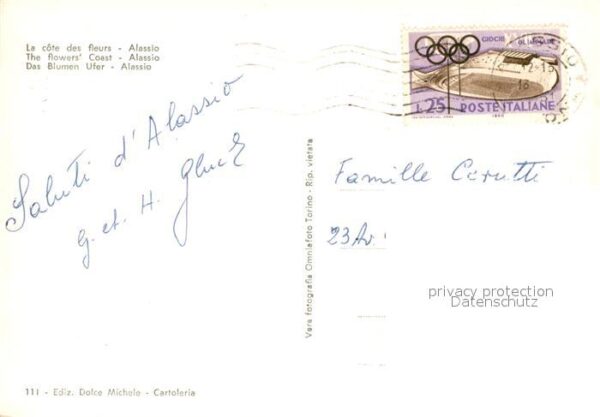 La côte des fleurs - Alassio
The flowers' Coast - Alassio
Das Blumen Ufer - Alassio
GIOCHI OLIMPICI
L.25 POSTE ITALIANE
1960
Saluti d'Alassio
G. et. H. Gluck
Famille Cerutti
23 Av.
privacy protection
Datenschutz
Vera fotografia Omniafoto Torino - Rip. vietata
111 - Ediz. Dolce Michele - Cartoleria